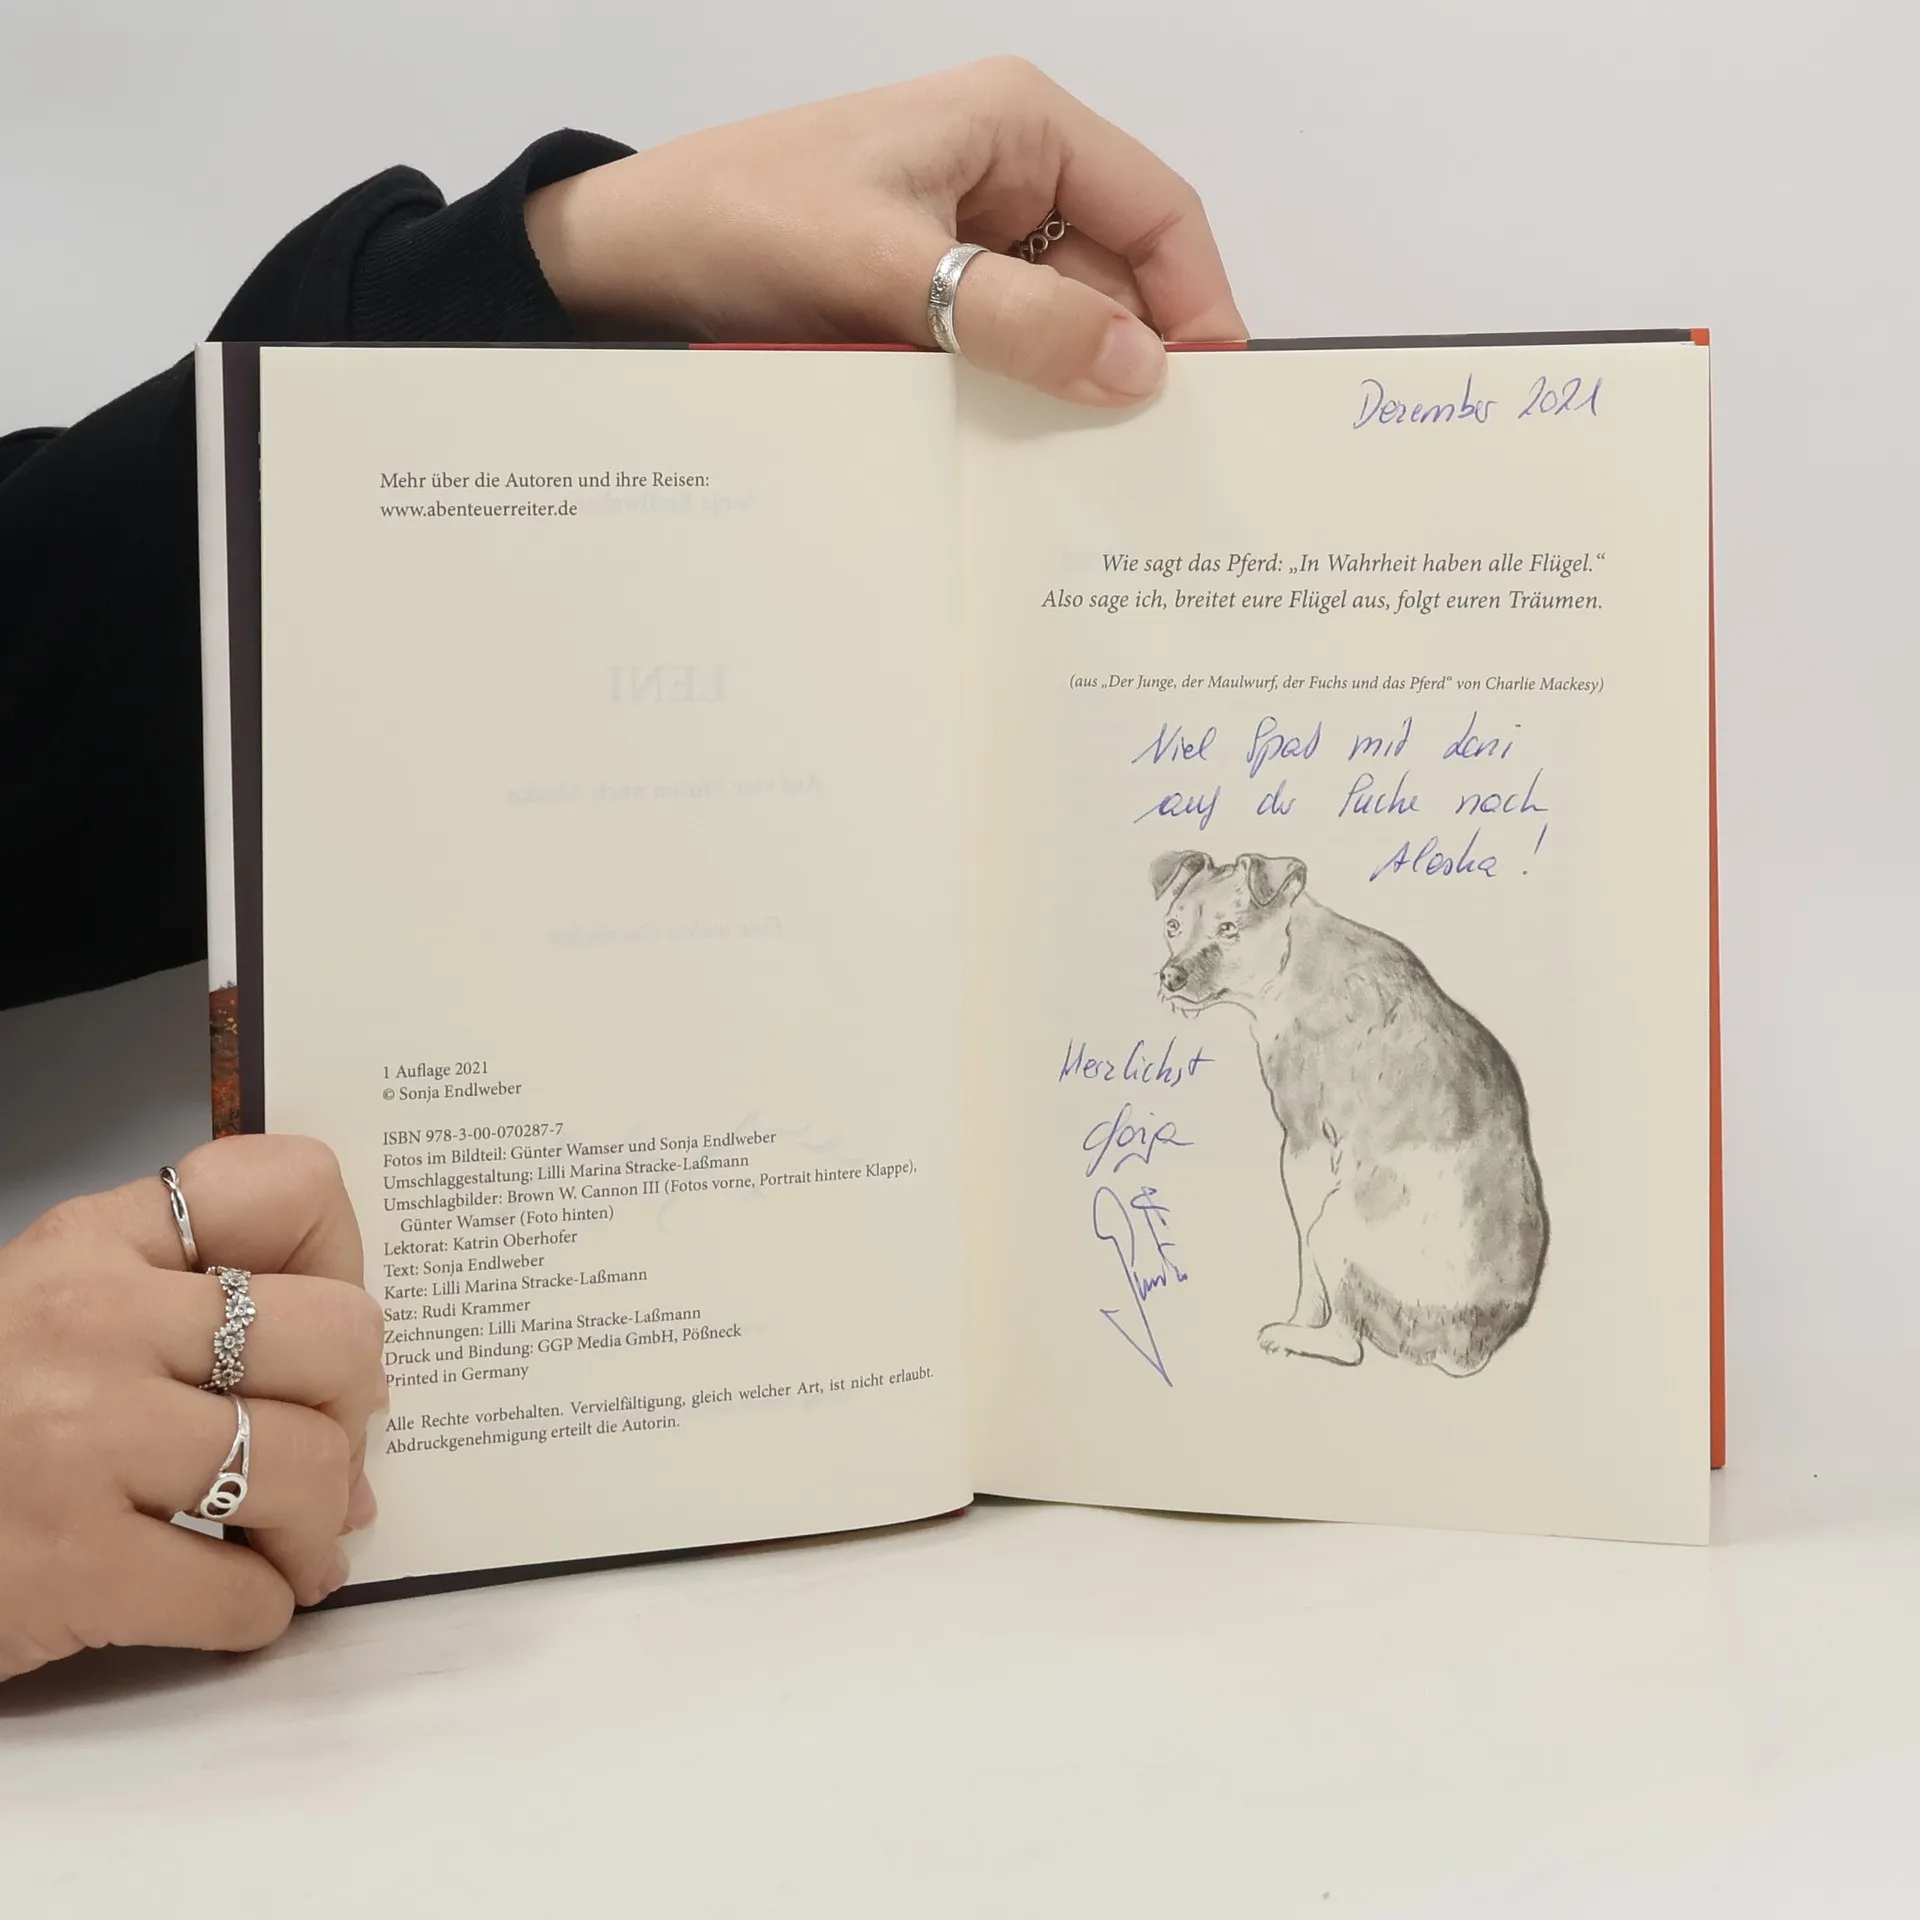 Mehr über die Autoren und ihre Reisen:
www.abenteuerreiter.de
1 Auflage 2021
© Sonja Endlweber
ISBN 978-3-00-070287-7
Fotos im Bildteil: Günter Wamser und Sonja Endlweber
Umschlaggestaltung: Lilli Marina Stracke-Laßmann
Umschlagbilder: Brown W. Cannon III (Fotos vorne, Portrait hintere Klappe),
Günter Wamser (Foto hinten)
Lektorat: Katrin Oberhofer
Text: Sonja Endlweber
Karte: Lilli Marina Stracke-Laßmann
Satz: Rudi Krammer
Zeichnungen: Lilli Marina Stracke-Laßmann
Druck und Bindung: GGP Media GmbH, Pößneck
Printed in Germany
Alle Rechte vorbehalten. Vervielfältigung, gleich welcher Art, ist nicht erlaubt.
Abdruckgenehmigung erteilt die Autorin.
Dezember 2021
Wie sagt das Pferd: „In Wahrheit haben alle Flügel.“
Also sage ich, breitet eure Flügel aus, folgt euren Träumen.
(aus „Der Junge, der Maulwurf, der Fuchs und das Pferd“ von Charlie Mackesy)
Viel Spaß mit Leni
auf der nach
Alaska!
Herzlichst
Sonja